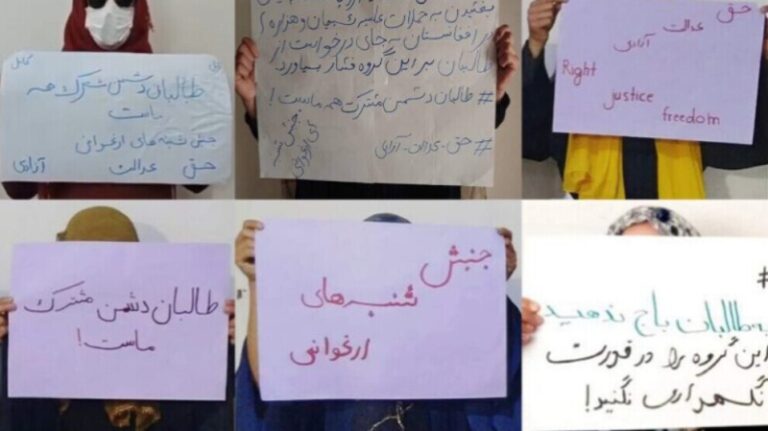 طالبان دشمن مشترک همه
ماست
جنبش شنبه‌های ارغوانی
حق عدالت آزادی
کابل
در افغانستان به جای درخواست از
طالبان بر این گروه فشار بیاورد.
# طالبان دشمن مشترک همه ماست!
# حق - عدالت - آزادی
جنبش شنبه
های ارغوانی
حق
عدالت
آزادی
Right
justice
freedom
طالبان دشمن مشترک
ماست!
جنبش
شنبه‌های
ارغوانی
#
به طالبان باج ندهید
این گروه را در قدرت
نگهداری نکنید!